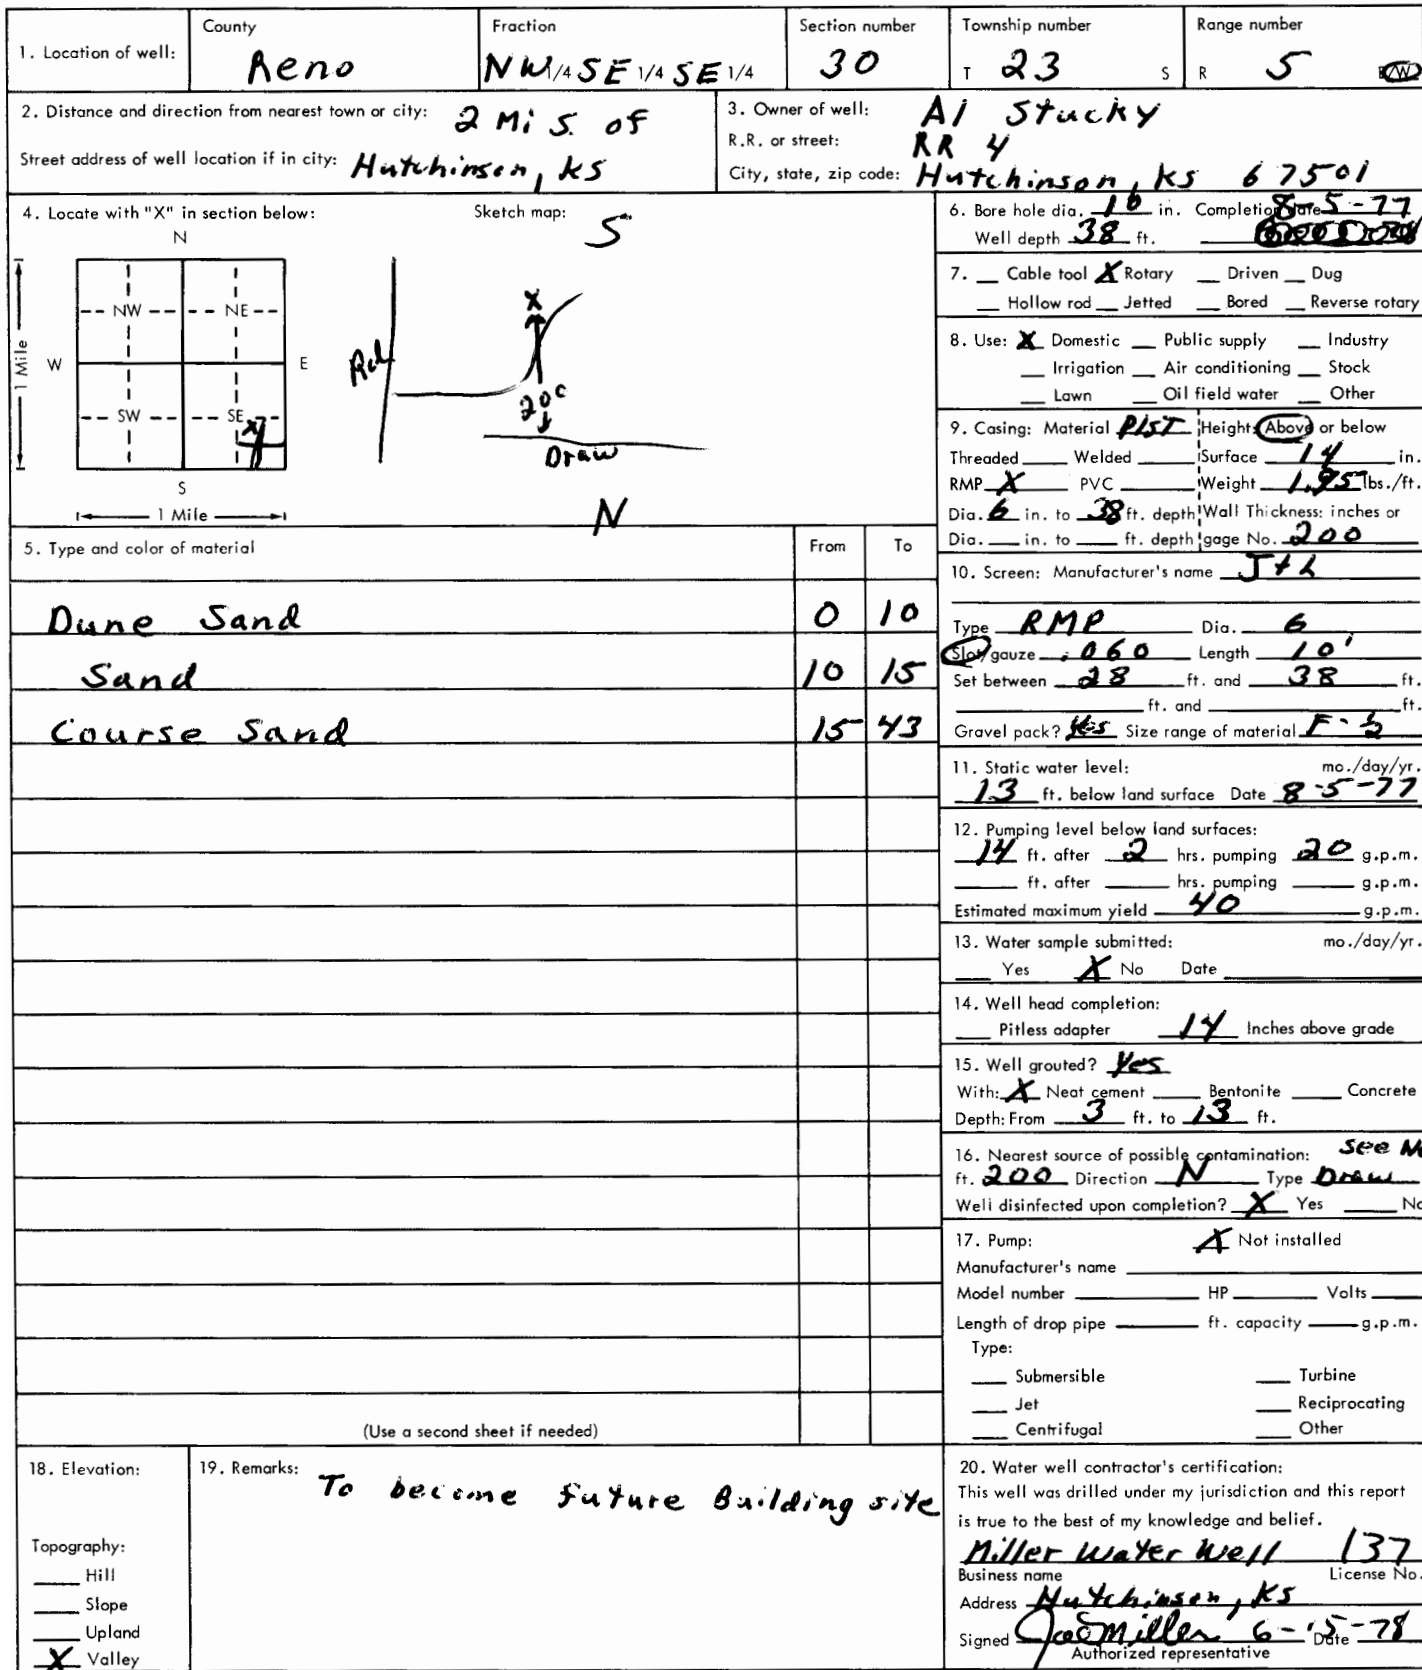 1. Location of well:
County
Reno
Fraction
NW 1/4 SE 1/4 SE 1/4
Section number
30
Township number
T 23 S
Range number
R 5 W
2. Distance and direction from nearest town or city: 2 Mi S. of
Street address of well location if in city: Hutchinson, KS
3. Owner of well: Al Stucky
R.R. or street: RR 4
City, state, zip code: Hutchinson, KS 67501
4. Locate with "X" in section below:
N
NW NE
W E
SW SE
X
S
1 Mile
1 Mile
Sketch map:
S
X
Rd
200
Draw
N
5. Type and color of material From To
Dune Sand 0 10
Sand 10 15
Course Sand 15 43
(Use a second sheet if needed)
6. Bore hole dia. 10 in. Completion date 8-5-77
Well depth 38 ft.
7. Cable tool X Rotary Driven Dug
Hollow rod Jetted Bored Reverse rotary
8. Use: X Domestic Public supply Industry
Irrigation Air conditioning Stock
Lawn Oil field water Other
9. Casing: Material PlST Height: Above or below
Threaded Welded Surface 14 in.
RMP X PVC Weight 1.95 lbs./ft.
Dia. 6 in. to 38 ft. depth Wall Thickness: inches or
Dia. in. to ft. depth gage No. 200
10. Screen: Manufacturer's name J+L
Type RMP Dia. 6
Slot/gauze .060 Length 10'
Set between 28 ft. and 38 ft.
ft. and ft.
Gravel pack? Yes Size range of material F-½
11. Static water level: mo./day/yr.
13 ft. below land surface Date 8-5-77
12. Pumping level below land surfaces:
14 ft. after 2 hrs. pumping 20 g.p.m.
ft. after hrs. pumping g.p.m.
Estimated maximum yield 40 g.p.m.
13. Water sample submitted: mo./day/yr.
Yes X No Date
14. Well head completion:
Pitless adapter 14 Inches above grade
15. Well grouted? Yes
With: X Neat cement Bentonite Concrete
Depth: From 3 ft. to 13 ft.
16. Nearest source of possible contamination: See
ft. 200 Direction N Type Draw
Well disinfected upon completion? X Yes No
17. Pump: X Not installed
Manufacturer's name
Model number HP Volts
Length of drop pipe ft. capacity g.p.m.
Type:
Submersible Turbine
Jet Reciprocating
Centrifugal Other
18. Elevation:
Topography:
Hill
Slope
Upland
X Valley
19. Remarks: To become future Building site
20. Water well contractor's certification:
This well was drilled under my jurisdiction and this report
is true to the best of my knowledge and belief.
Miller Water Well 137
Business name License No.
Address Hutchinson, KS
Signed Joe Miller 6-15-78 Date
Authorized representative